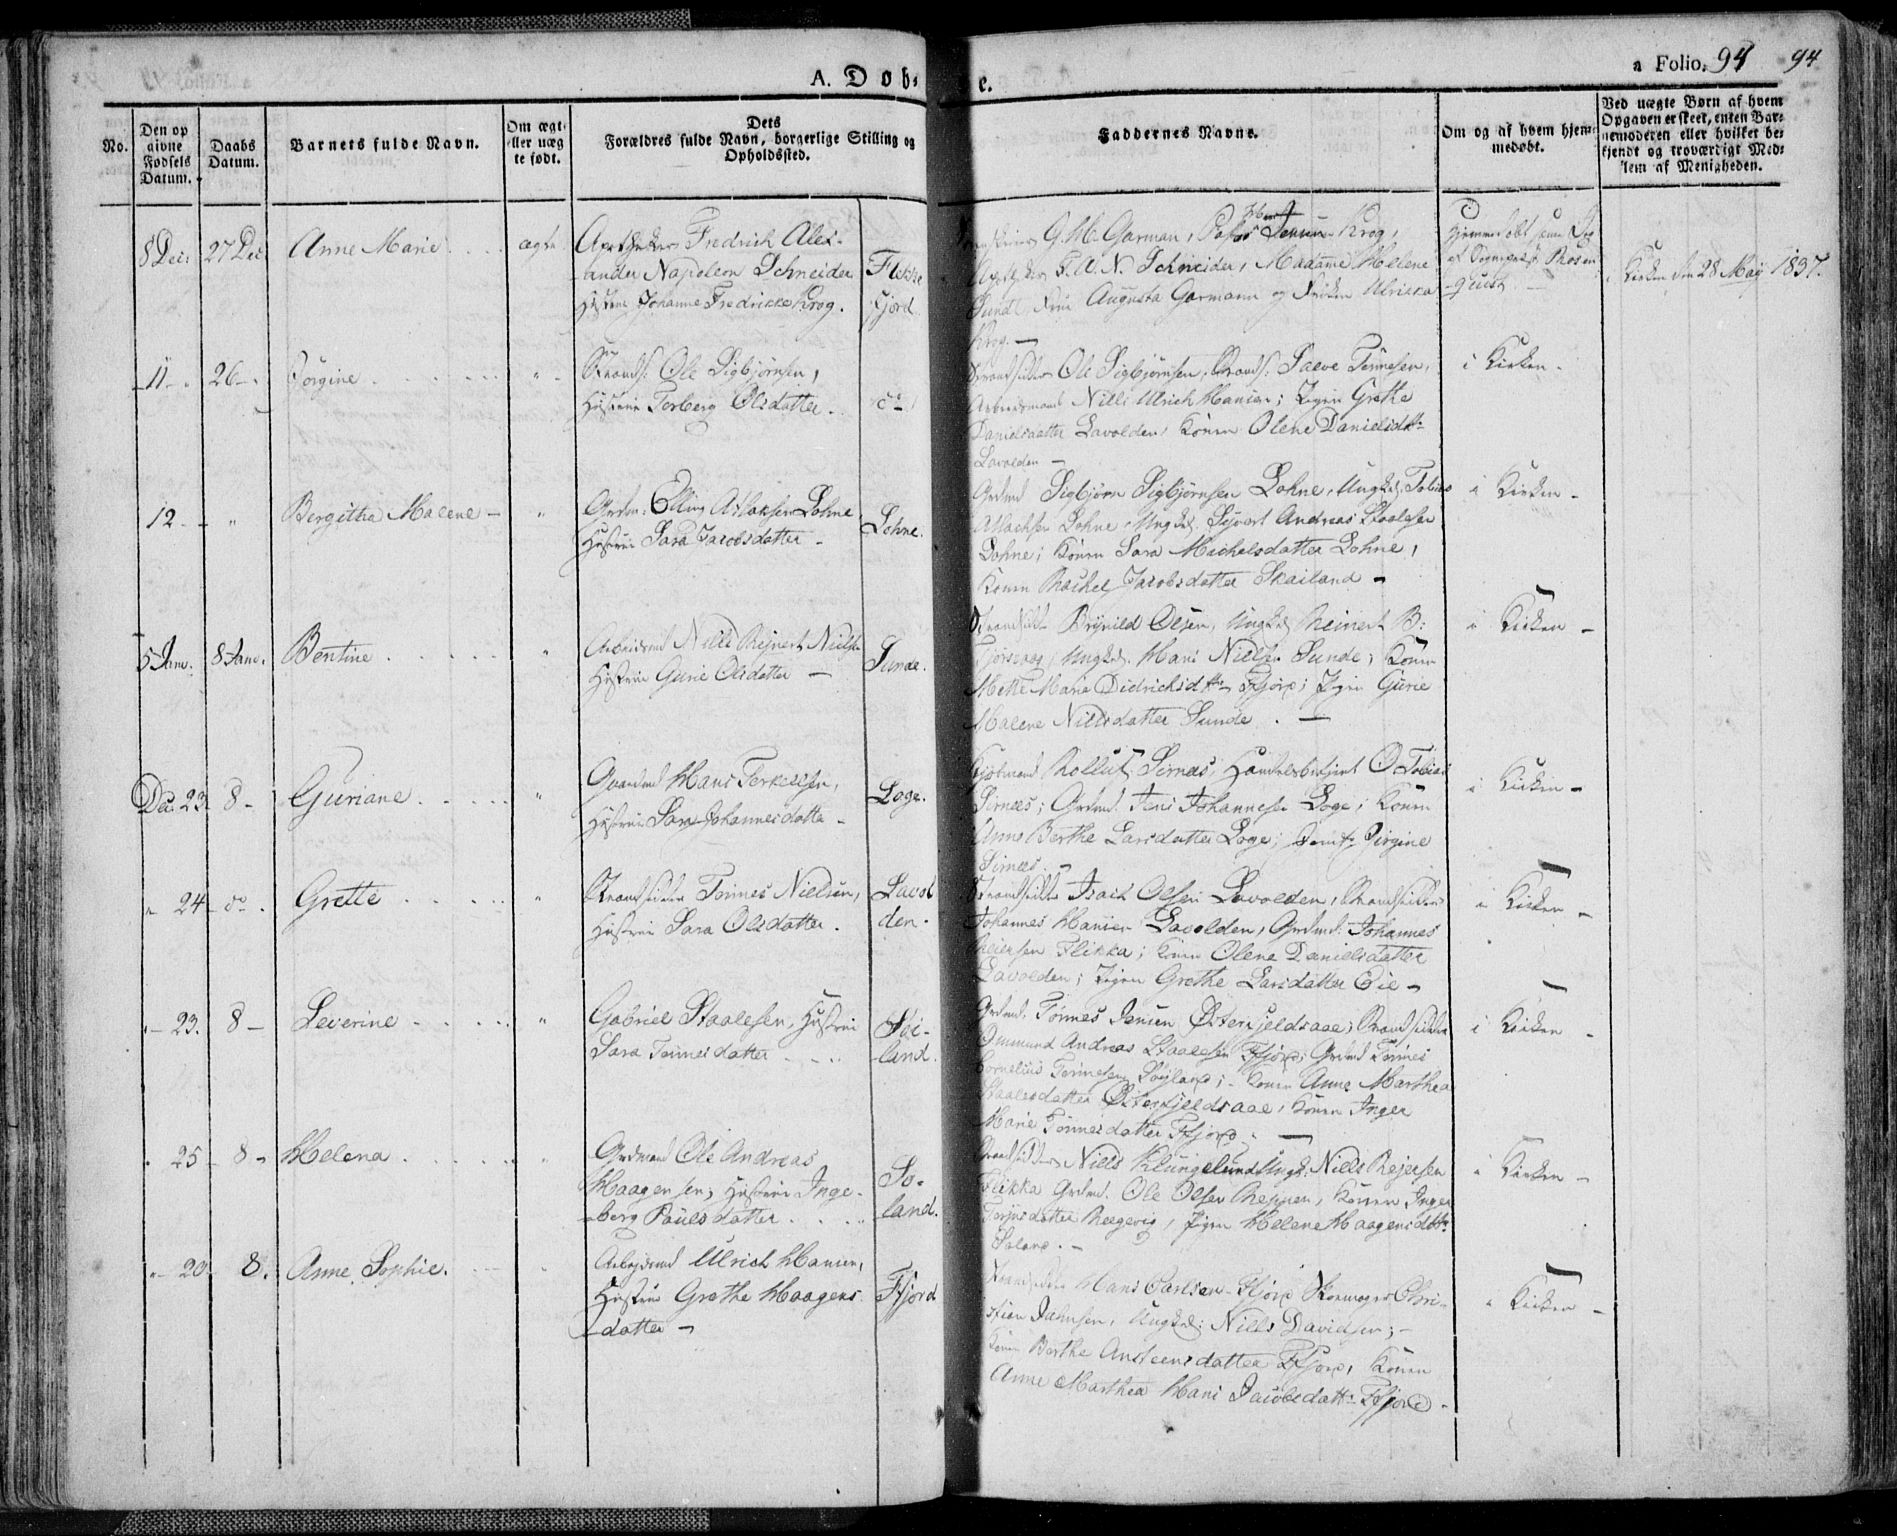 A. Døbte.
a Folio. 94 94
No.
Den opgivne Fødsels Datum.
Daabs Datum.
Barnets fulde Navn.
Om ægte eller uægte født.
Dets
Forældres fulde Navn, borgerlige Stilling og
Opholdssted.
Faddernes Navne.
Om og af hvem hjemmedøbt.
Ved uægte Børn af hvem
Opgaven er skeet, enten Bar-
nemoderen eller hvilket be-
kjendt og troværdigt Med-
lem af Menigheden.
8 Dec: 27 Dec Anne Marie ægte
Apotheker Fredrich Alex-
ander Napoleon Schneider
Hustrue Johanne Fredrikke Krog.
Flekke
fjord
G. H. Garman, Krog,
Apotheker F. A. N. Schneider, Madame Helene
Sund, Frue Augusta Garmann og Frøken Ulrikka
Krog. —
Hjemmedøbt
Rosen-
quist. —
Kirken den 28 Maij 1837.
11 26 Jørgine
Strands: Ole Sigbjørnsen,
Hustrue Torberg Olsdatter.
do
Strandsidder Ole Sigbjørnsen, Strands: Paeve Tønnesen,
Arbeidsmand Nills Ulrich Hansen; Pigen Grethe
Danielsdatter Lavolden, Konen Olene Danielsdtr
Lavolden —
i Kirken -
12 " Bergitha Malene — "
Grdm: Elling Aslaksen Lohne,
Hustrue Sara Jacobsdatter -
Lohne.
Grdmd Sigbjørn Sigbjørnsen Lohne, Ungkl: Tobias
Aslachsen Lohne, Ungkl, Syvert Andreas Staalesen
Lohne; Konen Sara Michelsdatter Lohne,
Konen Rachel Jacobsdatter Skailand -
i Kirken -
5 Jan. 8 Jan. Bentine "
Arbeidsmd Nills Rejnert Nielsen
Hustrue Gurie Olsdatter —
Sunde.
Strandsidd Brynild Olsen, Ungkl Reinert B:
Ungkl. Hans Nielsen Sunde; Konen
Mette Marie Didrichsdtr Ffjord; Pigen Gurie
Malene Nielsdatter Sunde. —
i Kirken -
Dec 23 8 - Guriane "
Gaardmd Hans Terkelsen,
Hustrue Sara Johannesdatter -
Loge.
Kjøbmand Rolluf Sirnæs, Handelsbetjent O. Tobias
Sirnæs; Grdmd. Jens Johannesen Loge; Konen
Anne Berthe Larsdatter Loge; Jomfr. Sirgine
Sirnæs. -
i Kirken -
" 24 do. Grette "
Strandsidder Tønnes Nielsen,
Hustrue Sara Olsdatter.
Lavol
den.
Strandsidder Isach Olsen Lavolden, Strandsidder
Johannes Hansen Lavolden, Grdmd: Johannes
Reiersen Flikka; Konen Olene Danielsdatter
Lavolden; Pigen Grethe Larsdatter Eie -
i Kirken -
" 23. 8 - Severine "
Gabriel Staalesen, Hustrue
Sara Tønnesdatter
Søi-
land.
Grdmd. Tønnes Jensen Østerfjeldsaae; Strandsidder
Ommund Andreas Staalesen Ffjord; Grdmd Tønnes
Cornelius Tønnesen Søyland; - Konen Anne Marthea
Staalesdatter Østerfjeldsaae, Konen Inger
Marie Tønnesdatter Ffjord. —
i Kirken -
" 25 - 8 - Helena "
Grdmand Ole Andreas
Haagensen, Hustrue Inge-
berg Paulsdatter.
So-
land.
Strandsidder Niels Klungeland, Ungkl: Niels Rejersen
Flikka Grdmd. Ole Olsen Reppen, Konen Inger
Torjusdatter Rægevig, Pigen Helene Haagensdtr
Soland. -
i Kirken -
" 20 8. Anne Sophie. "
Arbejdsmd Ulrich Hansen,
Hustrue Grethe Haagens-
datter -
Ffjord
Strandsidder Hans Carlsen Ffjord, Skomager Chri-
stian Jahnsen, Ungkl: Niels Davidsen; -
Konen Berthe Ansteensdatter Ffjord, Konen
Anne Marthea Hans Jacobsdattr Ffjord -
i Kirken -